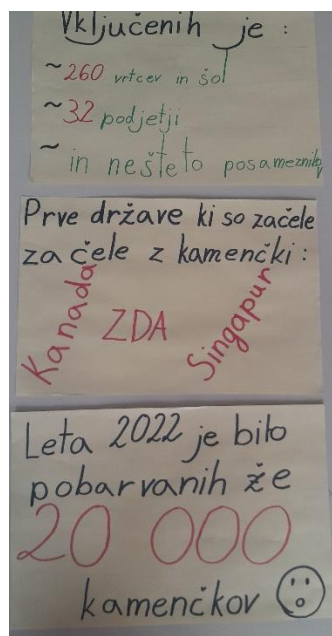 Vključenih je :
~260 vrtcev in šol
~32 podjetji
~ in nešteto posameznikov
Prve države ki so začele
začele z kamenčki :
Kanada ZDA Singapur
Leta 2022 je bilo
pobarvanih že
20 000
kamenčkov